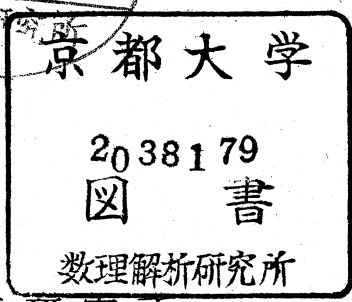 京都大学
2038179
図書
数理解析研究所